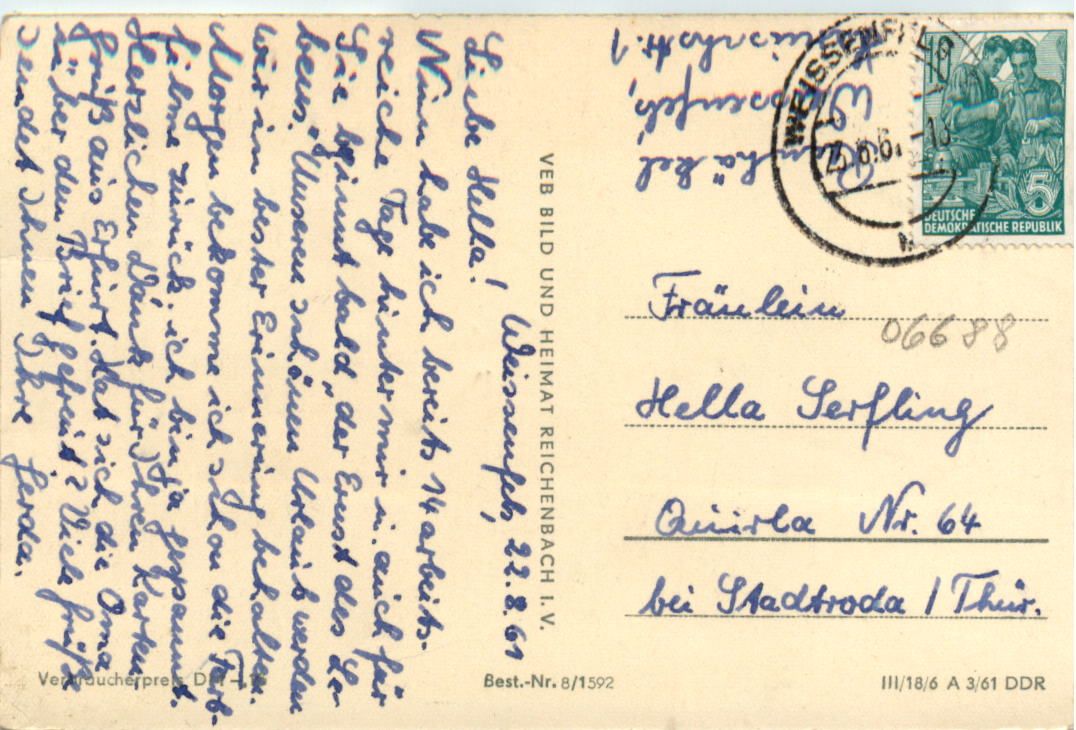 Weissenfels, 22.8.61
Liebe Hella!
Nun habe ich bereits 14 arbeits-
reiche Tage hinter mir u. auch für
Sie beginnt bald „der Ernst des Le-
bens." Unseren schönen Urlaub werden
wir in bester Erinnerung behalten.
Morgen bekomme ich schon die Farb-
filme zurück. ich bin ja gespannt.
Herzlichen Dank für Ihren Karten
gruß aus Erfurt. Hat sich die Oma
über den Brief gefreut? Viele Grüße
sendet Ihnen Ihre Gerda.
VEB BILD UND HEIMAT REICHENBACH I. V.
Verbraucherpreis
Best.-Nr. 8/1592
WEISSENFELS
10
5
DEUTSCHE
DEMOKRATISCHE REPUBLIK
Fräulein
06688
Hella Serfling
Quirla Nr. 64
bei Stadtroda / Thür.
III/18/6 A 3/61 DDR